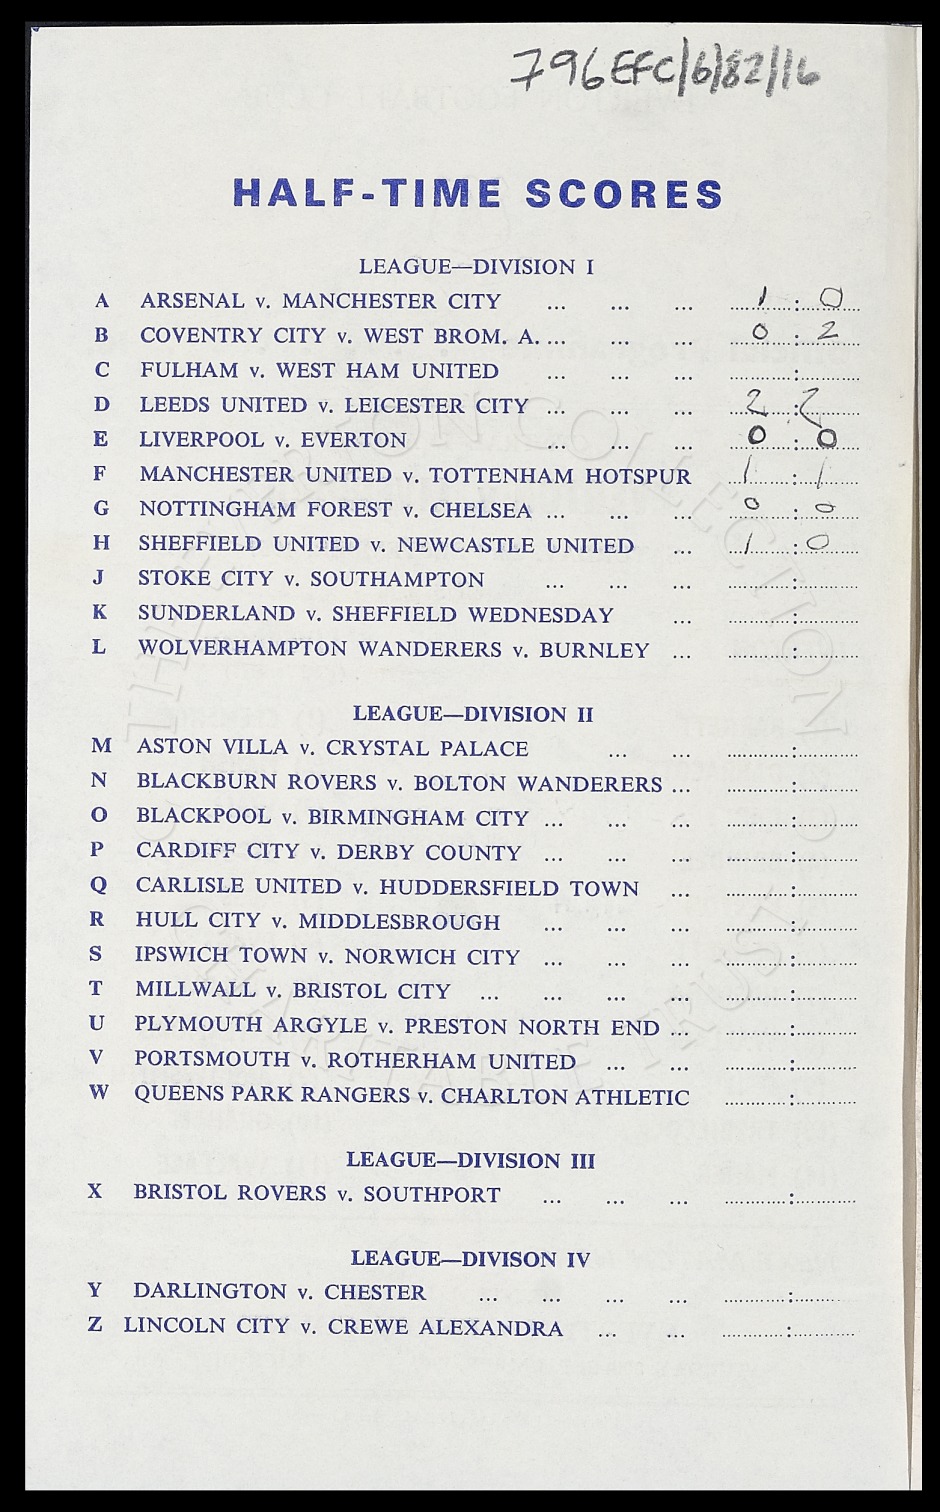 796EFC/6/82/16
HALF-TIME SCORES
LEAGUE—DIVISION I
A ARSENAL v. MANCHESTER CITY ... ... ... 1 : 0
B COVENTRY CITY v. WEST BROM. A. ... ... ... 0 : 2
C FULHAM v. WEST HAM UNITED ... ... ... ............:............
D LEEDS UNITED v. LEICESTER CITY ... ... ... 2 : 2
E LIVERPOOL v. EVERTON ... ... ... 0 : 0
F MANCHESTER UNITED v. TOTTENHAM HOTSPUR 1 : 1
G NOTTINGHAM FOREST v. CHELSEA ... ... ... 0 : 0
H SHEFFIELD UNITED v. NEWCASTLE UNITED ... 1 : 0
J STOKE CITY v. SOUTHAMPTON ... ... ... ............:............
K SUNDERLAND v. SHEFFIELD WEDNESDAY ... ............:............
L WOLVERHAMPTON WANDERERS v. BURNLEY ... ............:............
LEAGUE—DIVISION II
M ASTON VILLA v. CRYSTAL PALACE ... ... ............:............
N BLACKBURN ROVERS v. BOLTON WANDERERS ... ............:............
O BLACKPOOL v. BIRMINGHAM CITY ... ... ... ............:............
P CARDIFF CITY v. DERBY COUNTY ... ... ... ............:............
Q CARLISLE UNITED v. HUDDERSFIELD TOWN ... ............:............
R HULL CITY v. MIDDLESBROUGH ... ... ... ............:............
S IPSWICH TOWN v. NORWICH CITY ... ... ... ............:............
T MILLWALL v. BRISTOL CITY ... ... ... ... ............:............
U PLYMOUTH ARGYLE v. PRESTON NORTH END ... ............:............
V PORTSMOUTH v. ROTHERHAM UNITED ... ... ............:............
W QUEENS PARK RANGERS v. CHARLTON ATHLETIC ............:............
LEAGUE—DIVISION III
X BRISTOL ROVERS v. SOUTHPORT ... ... ... ............:............
LEAGUE—DIVISON IV
Y DARLINGTON v. CHESTER ... ... ... ... ............:............
Z LINCOLN CITY v. CREWE ALEXANDRA ... ... ............:............
THE EVERTON COLLECTION
CHARITABLE TRUST